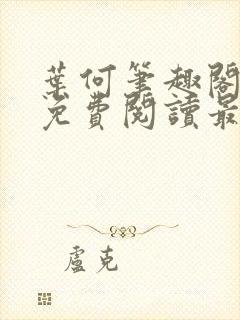 葉何筆趣閣
免費閱讀最
盧克